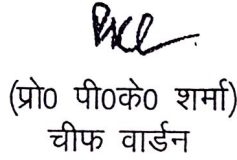 (प्रो0 पी0के0 शर्मा)
चीफ वार्डन